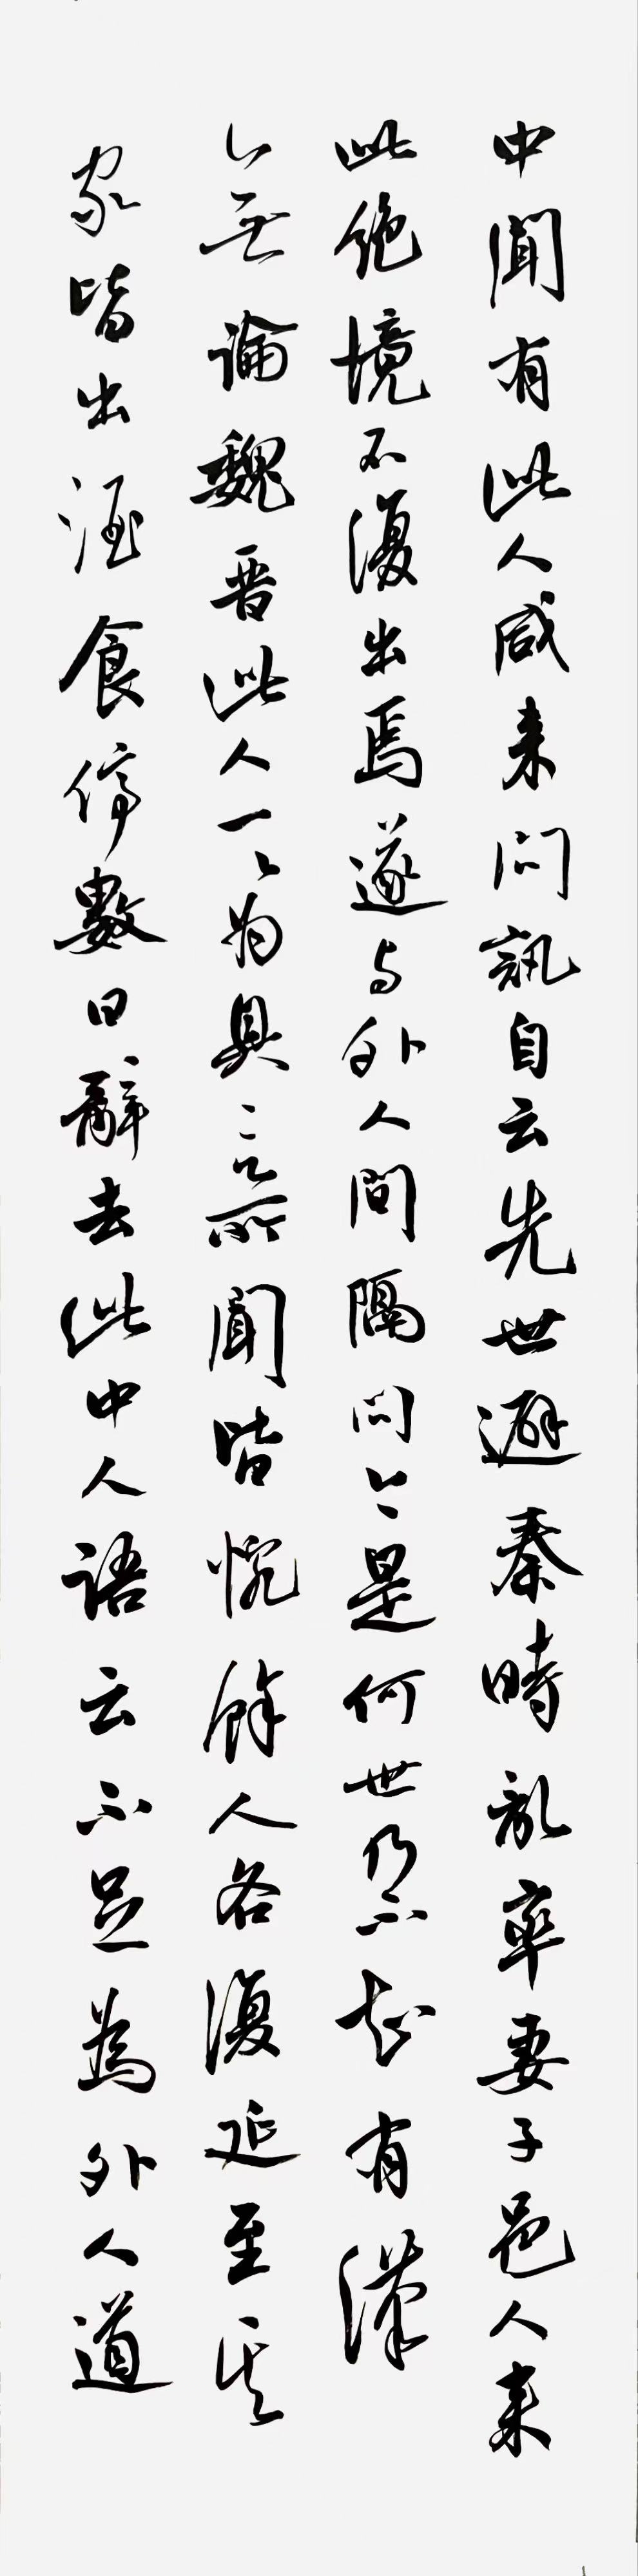 中聞有此人咸来問訊自云先世避秦時乱率妻子邑人来
此絶境不復出焉遂与外人間隔問今是何世乃不知有漢
無論魏晋此人一〻为具言所聞皆惋餘人各復延至其
家皆出酒食停數日辭去此中人語云不足為外人道